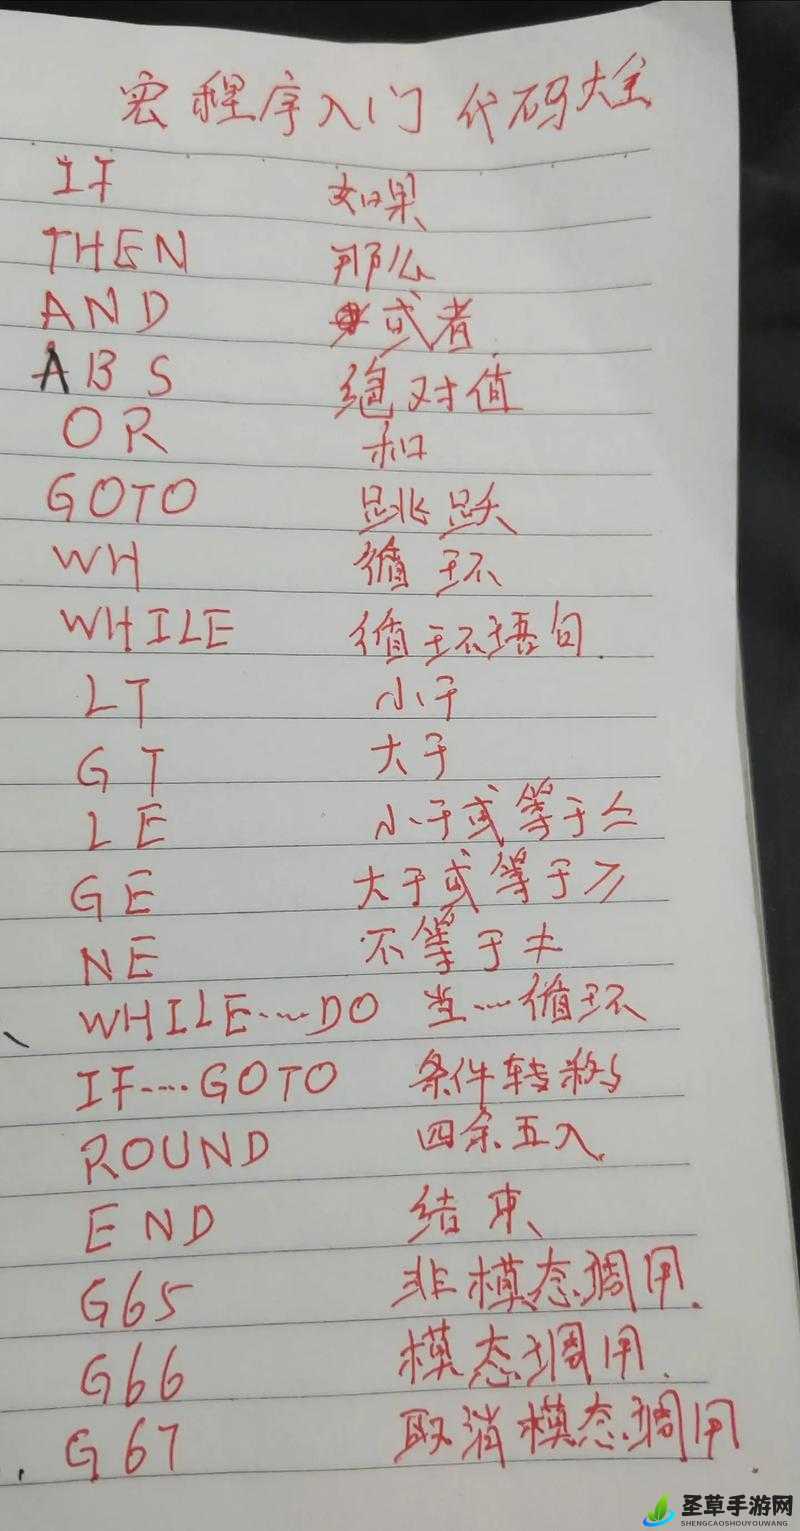 宏程序入门 代码大全
IF 如果
THEN 那么
AND 或者
ABS 绝对值
OR 和
GOTO 跳跃
WH 循环
WHILE 循环语句.
LT 小于
GT 大于
LE 小于或等于≤
GE 大于或等于≥
NE 不等于≠
WHILE……DO 当一循环
IF……GOTO 条件转移
ROUND 四余五入
END 结束
G65 非模态调用.
G66 模态调用.
G67 取消模态调用
圣草手游网
SHENGCAOSHOUYOUWANG